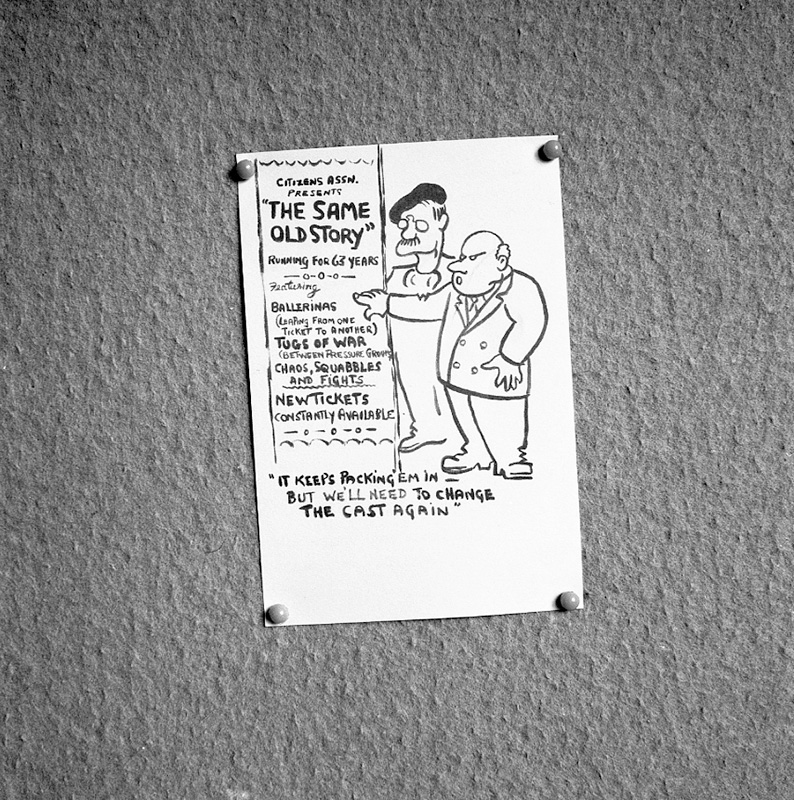 CITIZENS ASSN.
PRESENTS
"THE SAME
OLD STORY"
RUNNING FOR 63 YEARS
Featuring
BALLERINAS
(LEAPING FROM ONE
TICKET TO ANOTHER)
TUGS OF WAR
(BETWEEN PRESSURE GROUPS
CHAOS, SQUABBLES
AND FIGHTS
NEW TICKETS
CONSTANTLY AVAILABLE
"IT KEEPS PACKING 'EM IN —
BUT WE'LL NEED TO CHANGE
THE CAST AGAIN"